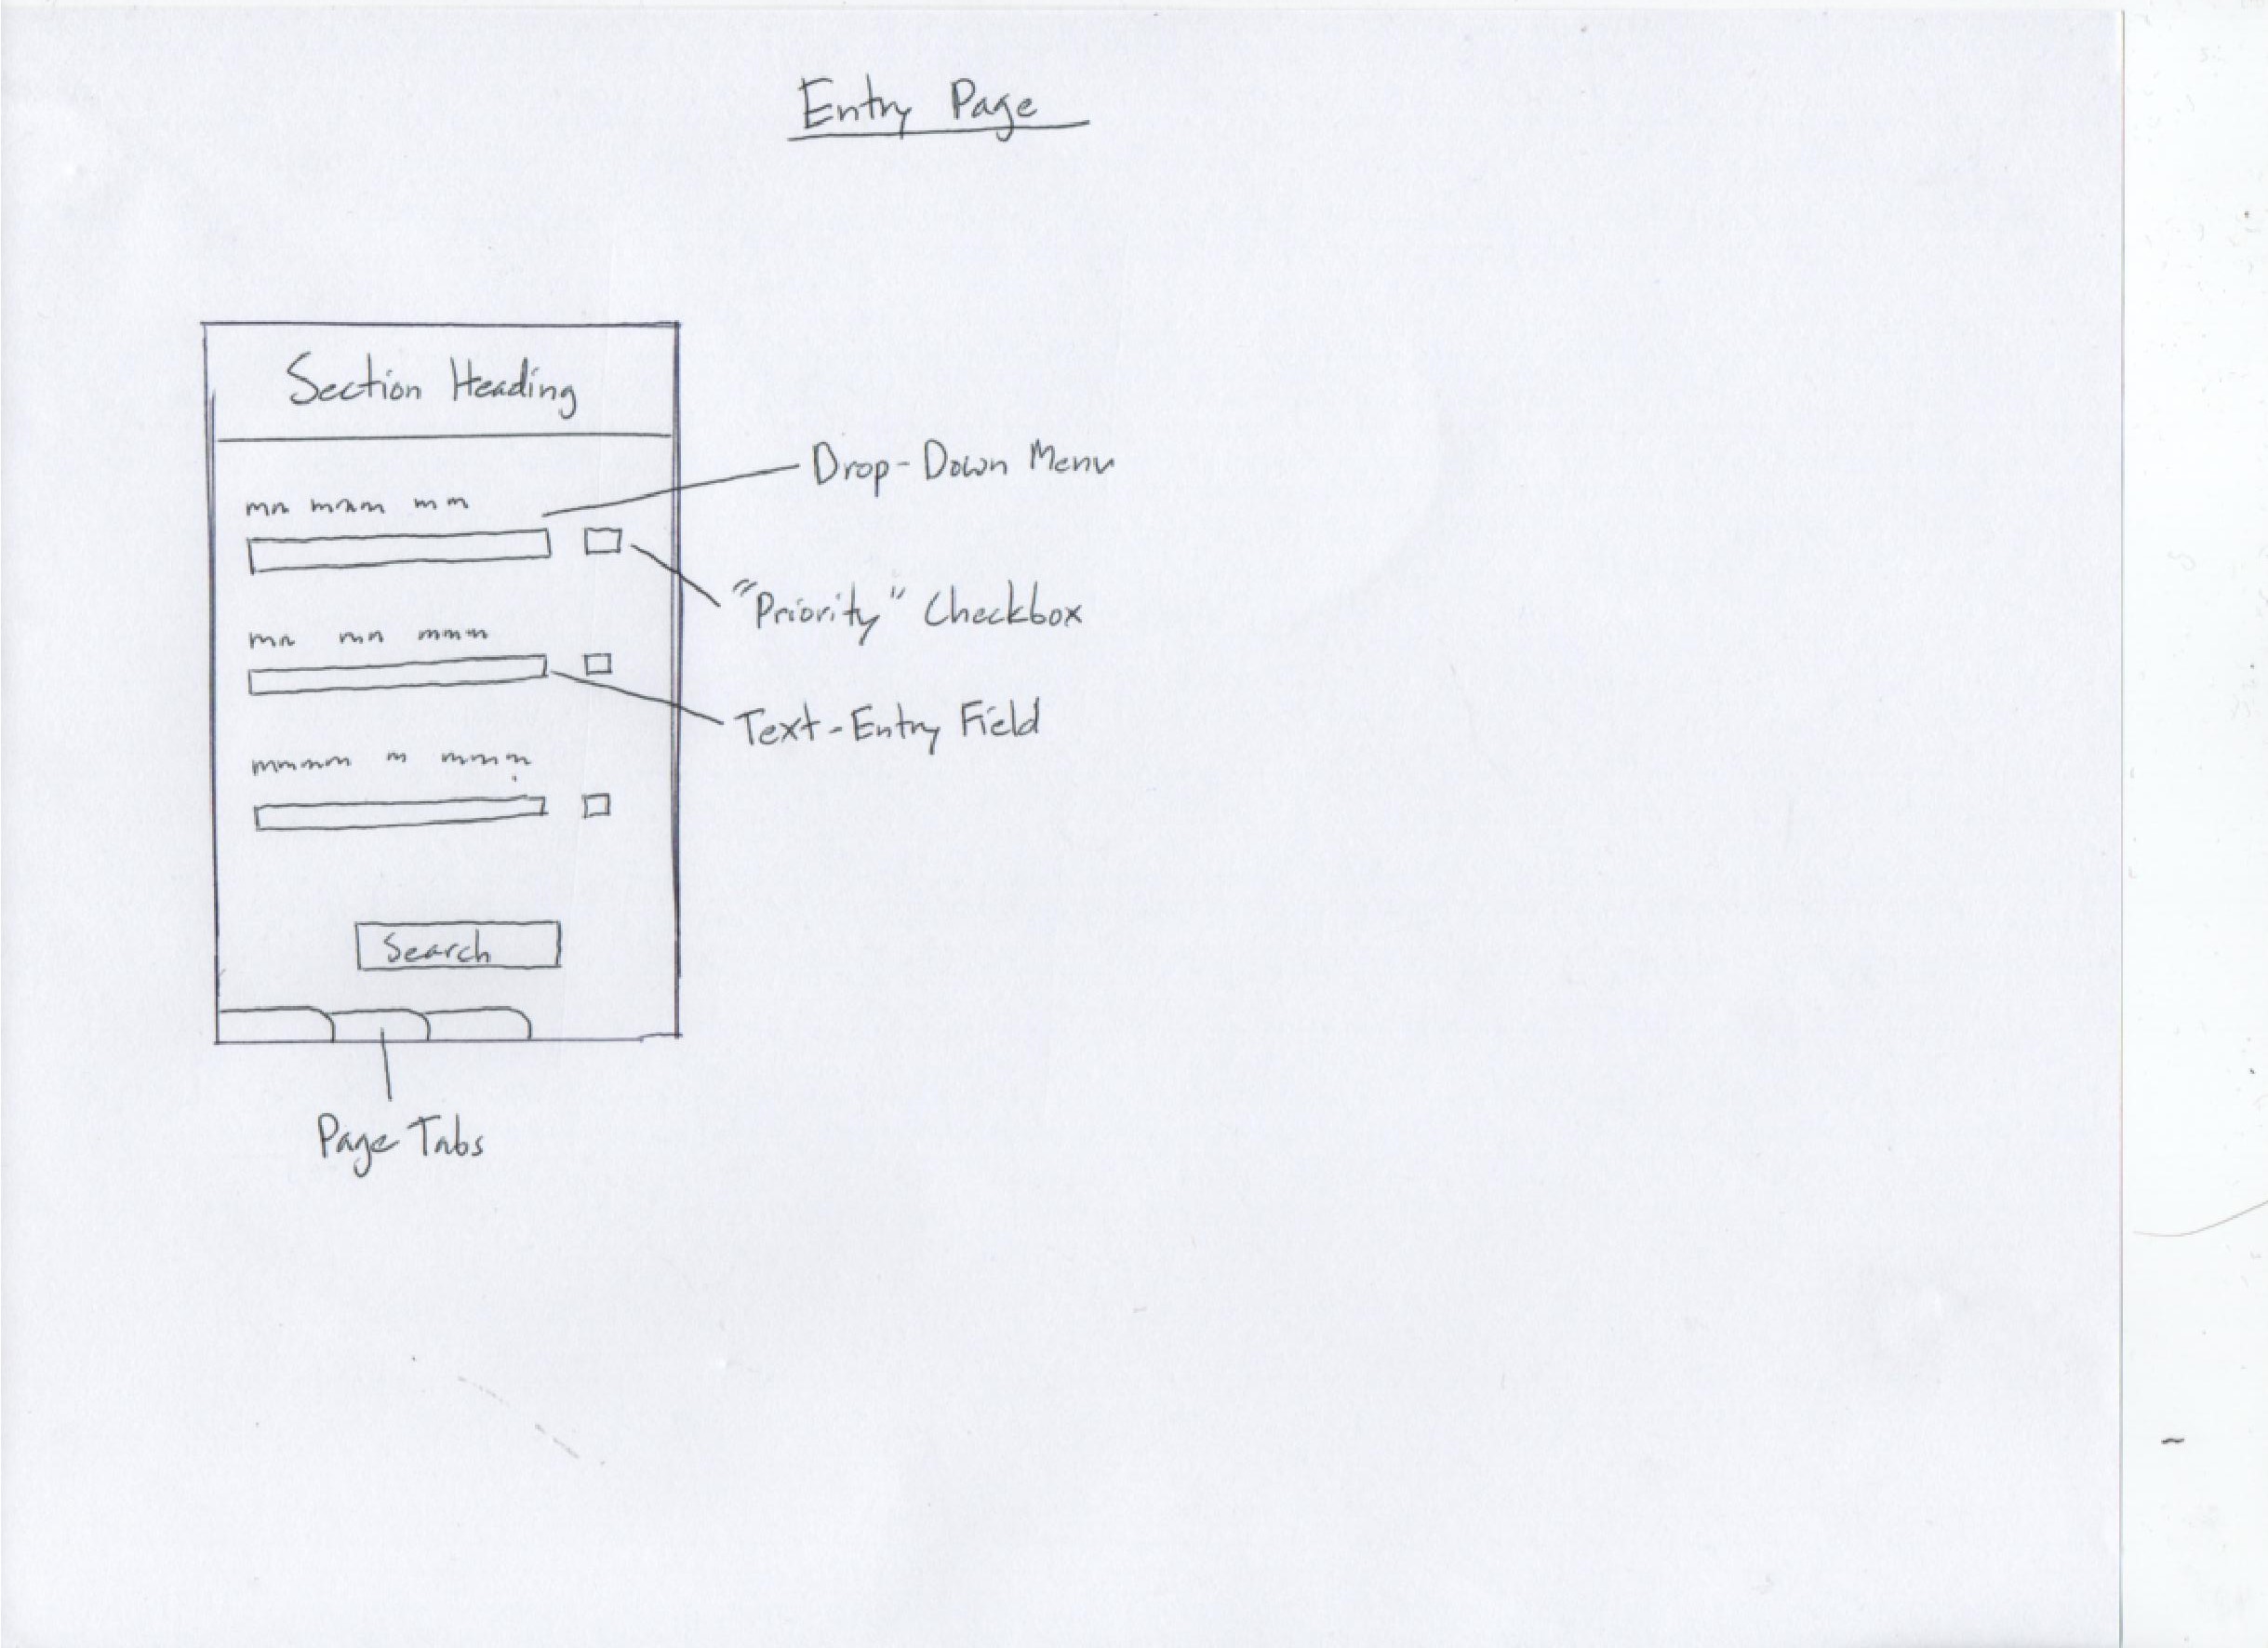 Entry Page
Section Heading
Drop-Down Menu
"Priority" Checkbox
Text-Entry Field
Search
Page Tabs